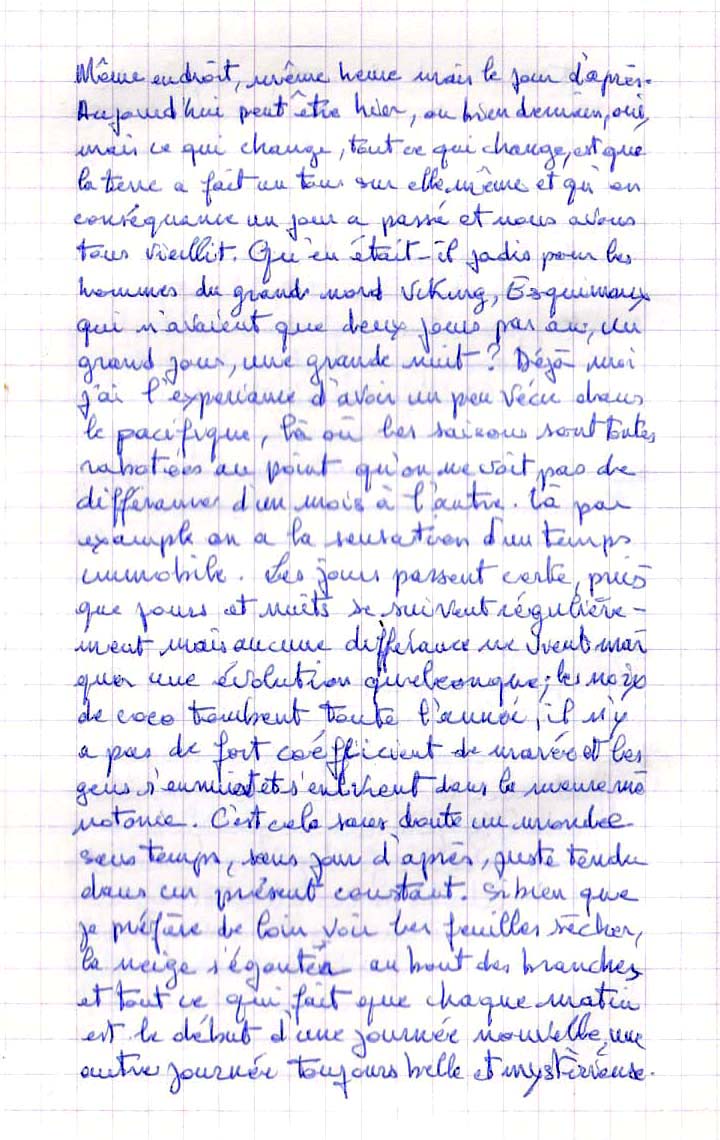 Même endroit, même heure mais le jour d'après.
Aujourd'hui peut être hier, ou bien demain, oui,
mais ce qui change, tout ce qui change, est que
la terre a fait un tour sur elle même et qu'en
conséquance un jour a passé et nous avons
tous vieillit. Qu'en était-il jadis pour les
hommes du grand nord Viking, Esquimaux
qui n'avaient que deux jours par an, un
grand jour, une grande nuit ? Déjà moi
j'ai l'experiance d'avoir un peu vécu dans
le pacifique, là où les saisons sont toutes
rabotées au point qu'on ne voit pas de
différances d'un mois à l'autre. Là par
example on a la sensation d'un temps
immobile. Les jours passent certe, puis
que jours et nuits se suivent régulière-
ment mais aucune differance ne vient mar
quer une évolution quelconque ; les noix
de coco tombent toute l'année, il n'y
a pas de fort coéfficient de marée et les
gens s'ennuient et s'enivrent dans la meme mo
notonie. C'est cela sans doute un monde
sans temps, sans jour d'après, juste tendu
dans un présent constant. Si bien que
je préfère de loin voir les feuilles sécher,
la neige s'égouter au bout des branches
et tout ce qui fait que chaque matin
est le début d'une journée nouvelle, une
autre journée toujours belle et mystérieuse.